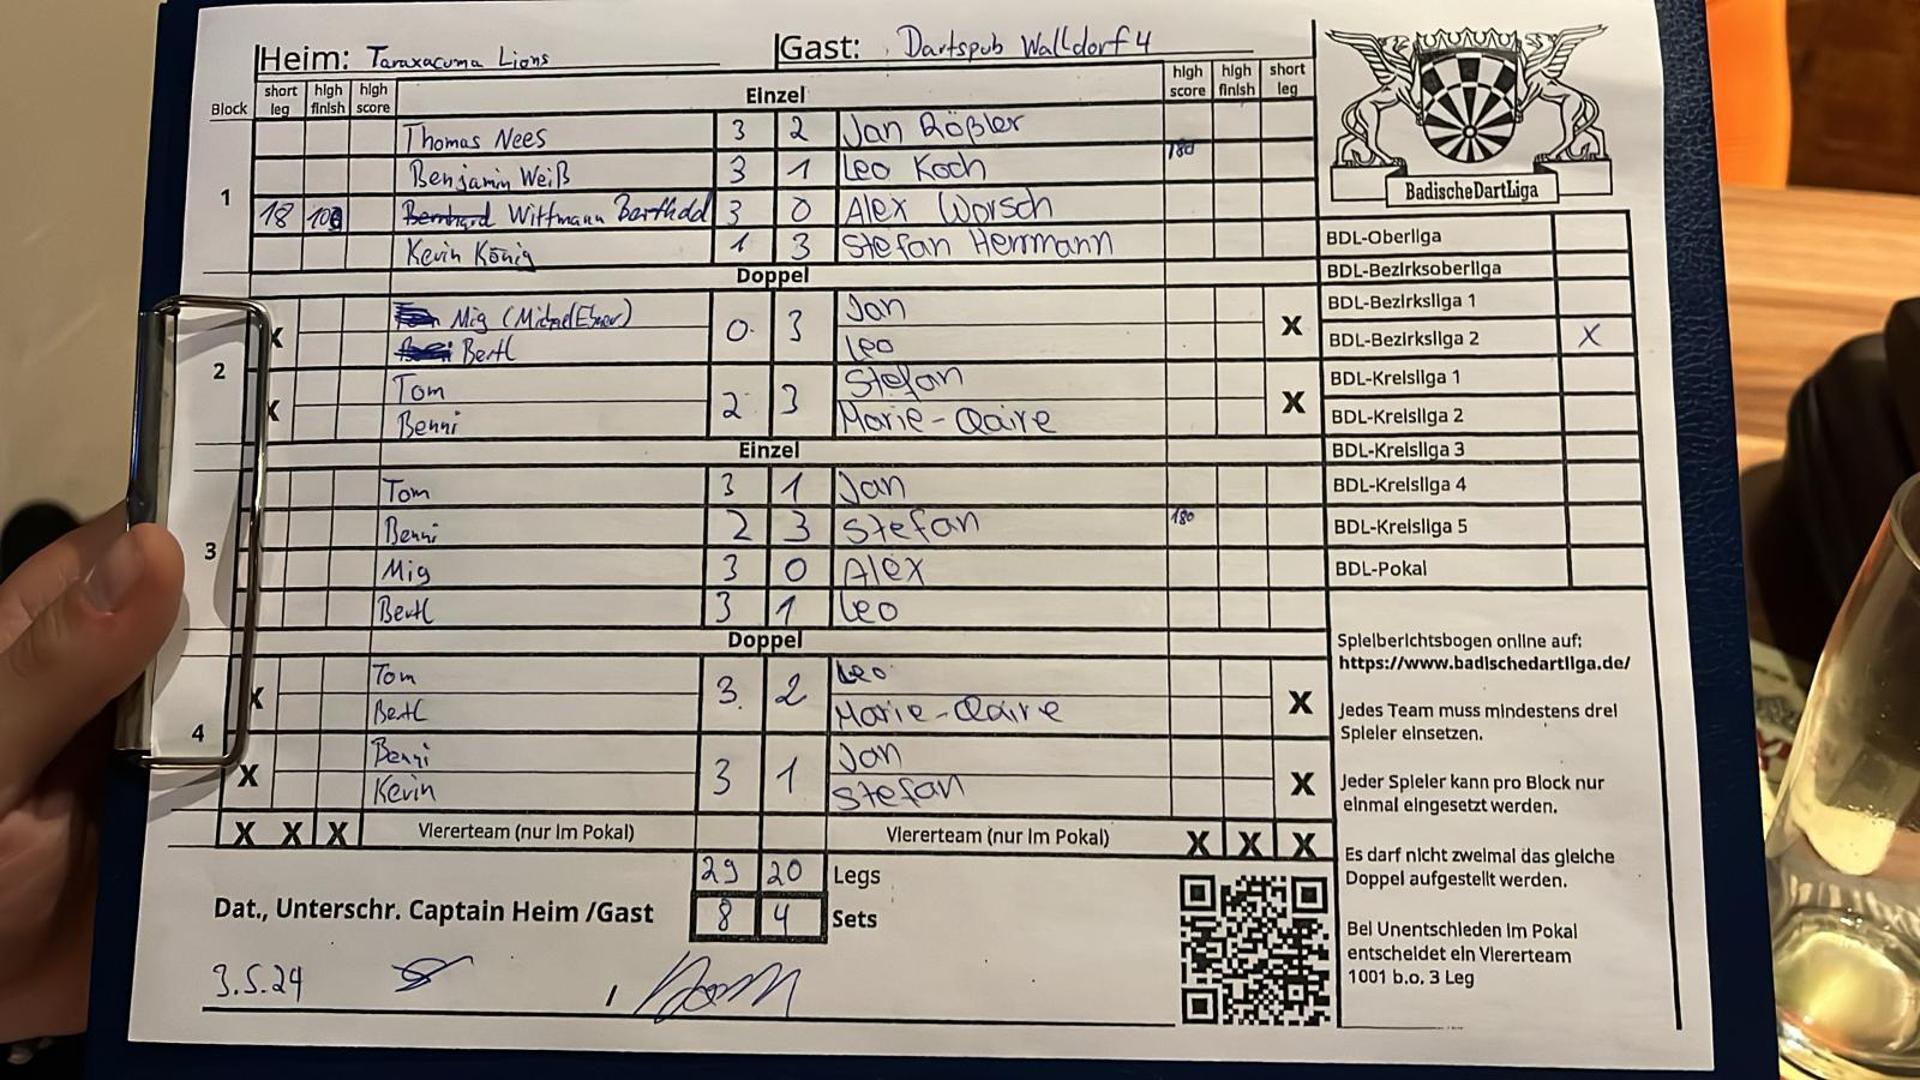 Heim: Taraxacuma Lions Gast: Dartspub Walldorf 4
Block short leg high finish high score Einzel high score high finish short leg
1
Thomas Nees 3 2 Jan Rößler
Benjamin Weiß 3 1 Leo Koch 180
18 Wittmann Berthold 3 0 Alex Worsch
Kevin König 1 3 Stefan Herrmann
Doppel
2
X Mig 0 3 Jan X
Bertl Leo
X Tom 2 3 Stefan X
Benni Marie-Claire
Einzel
3
Tom 3 1 Jan
Benni 2 3 Stefan 180
Mig 3 0 Alex
Bertl 3 1 Leo
Doppel
4
X Tom 3 2 Leo X
Bertl Marie-Claire
X Benni 3 1 Jan X
Kevin Stefan
X X X Viererteam (nur im Pokal) Viererteam (nur im Pokal) X X X
29 20 Legs
Dat., Unterschr. Captain Heim /Gast 8 4 Sets
3.5.24 /
BadischeDartLiga
BDL-Oberliga
BDL-Bezirksoberliga
BDL-Bezirksliga 1
BDL-Bezirksliga 2 X
BDL-Kreisliga 1
BDL-Kreisliga 2
BDL-Kreisliga 3
BDL-Kreisliga 4
BDL-Kreisliga 5
BDL-Pokal
Spielberichtsbogen online auf:
https://www.badischedartliga.de/
Jedes Team muss mindestens drei
Spieler einsetzen.
Jeder Spieler kann pro Block nur
einmal eingesetzt werden.
Es darf nicht zweimal das gleiche
Doppel aufgestellt werden.
Bei Unentschieden im Pokal
entscheidet ein Viererteam
1001 b.o. 3 Leg